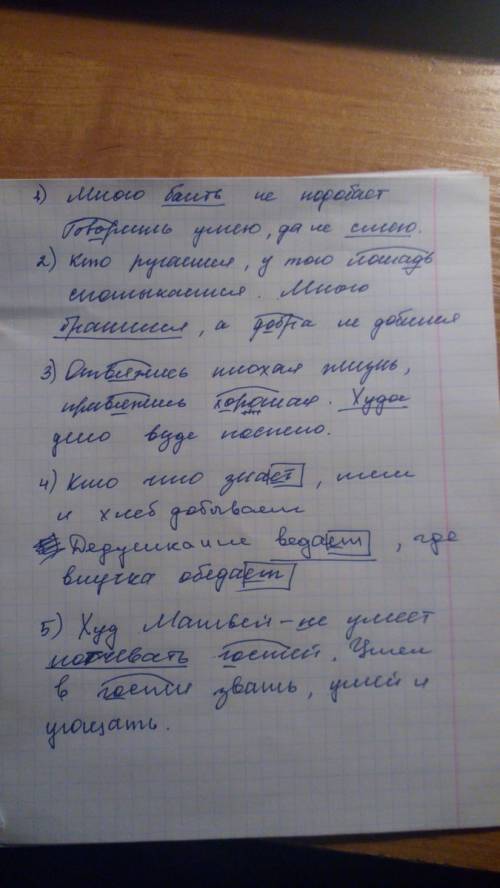 1) Много баить не подобает
Говорить умею, да не смею.
2) Кто ругается, у того лошадь
спотыкается. Много
бранился, а добра не добился
3) Отвяжись плохая жизнь,
привяжись хорошая. Худое
дело везде поспело.
4) Кто что знает, тем
и хлеб добывает
Дедушка не ведает, где
внучка обедает
5) Худ Матвей - не умеет
потчевать гостей. Умел
в гости звать, умей и
угощать.